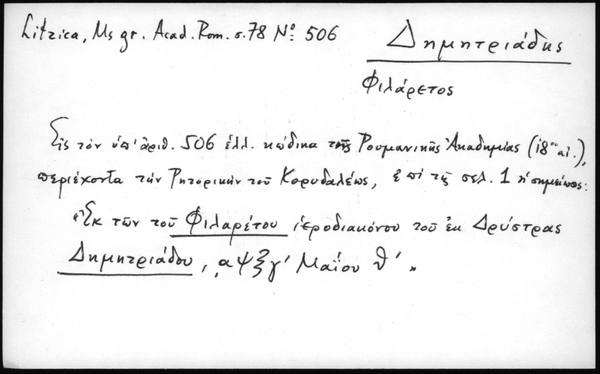 Litzica, Ms gr. Acad. Rom. σ. 78 Nº 506
Δημητριάδης
Φιλάρετος
Εἰς τὸν ὑπ' ἀριθ. 506 ἑλλ. κώδικα τῆς Ρουμανικῆς Ἀκαδημίας (18ου αἰ.),
περιέχοντα τὴν Ρητορικὴν τοῦ Κορυδαλέως, ἐπὶ τῆς σελ. 1 ἡ σημείωσις:
«Ἐκ τῶν τοῦ Φιλαρέτου ἱεροδιακόνου τοῦ ἐκ Δρύστρας
Δημητριάδου, ͵αψξγ' Μαΐου θ'».